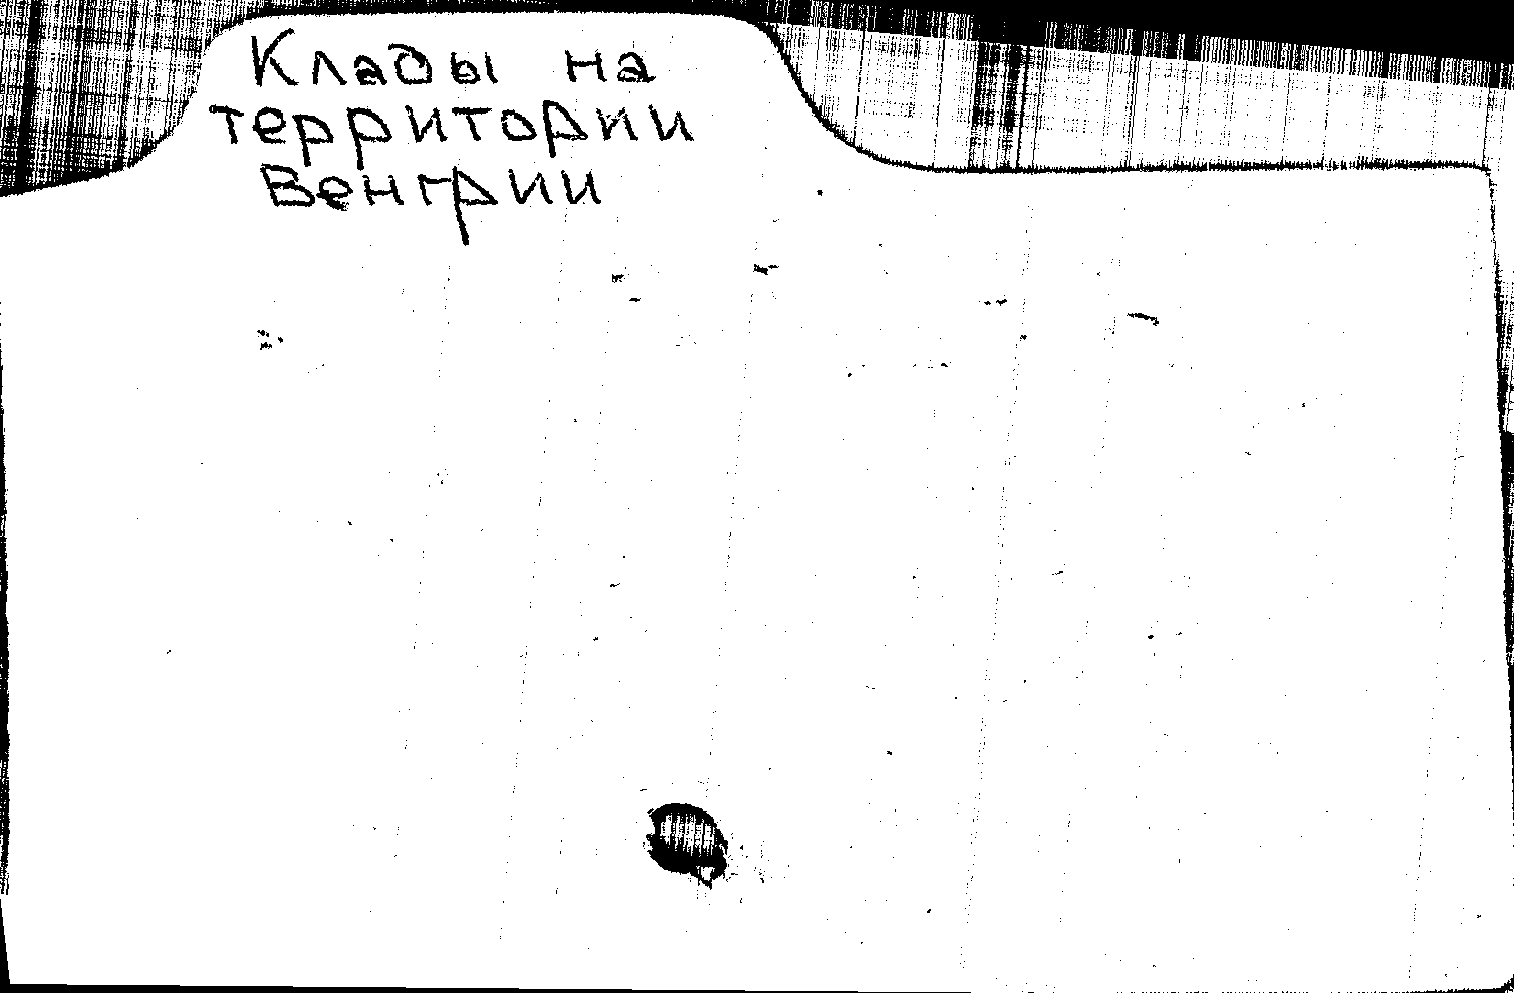 Клады на
территории
Венгрии